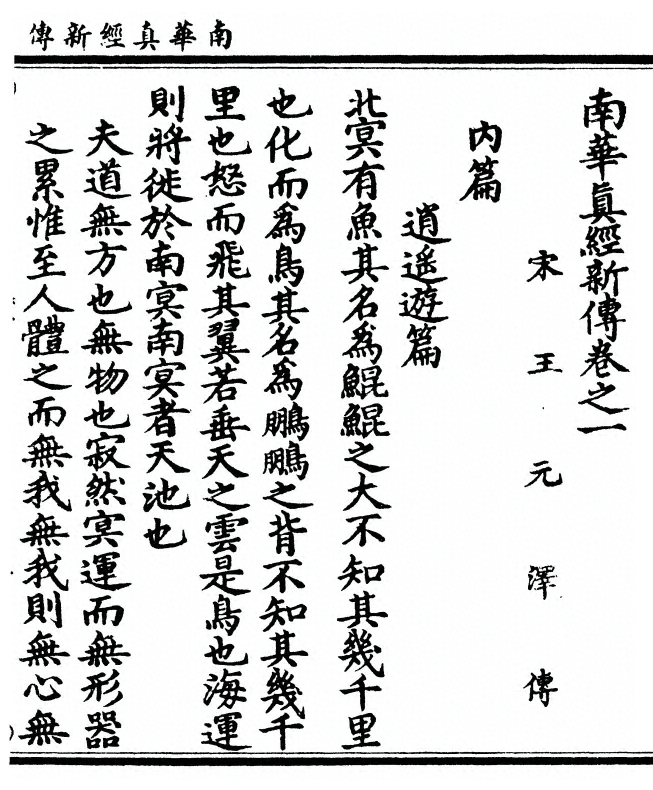 南華真經新傳
南華眞經新傳卷之一
宋王元澤傳
內篇
逍遙遊篇
北冥有魚其名為鯤鯤之大不知其幾千里
也化而為鳥其名為鵬鵬之背不知其幾千
里也怒而飛其翼若垂天之雲是鳥也海運
則將徙於南冥南冥者天池也
夫道無方也無物也寂然冥運而無形器
之累惟至人體之而無我無我則無心無